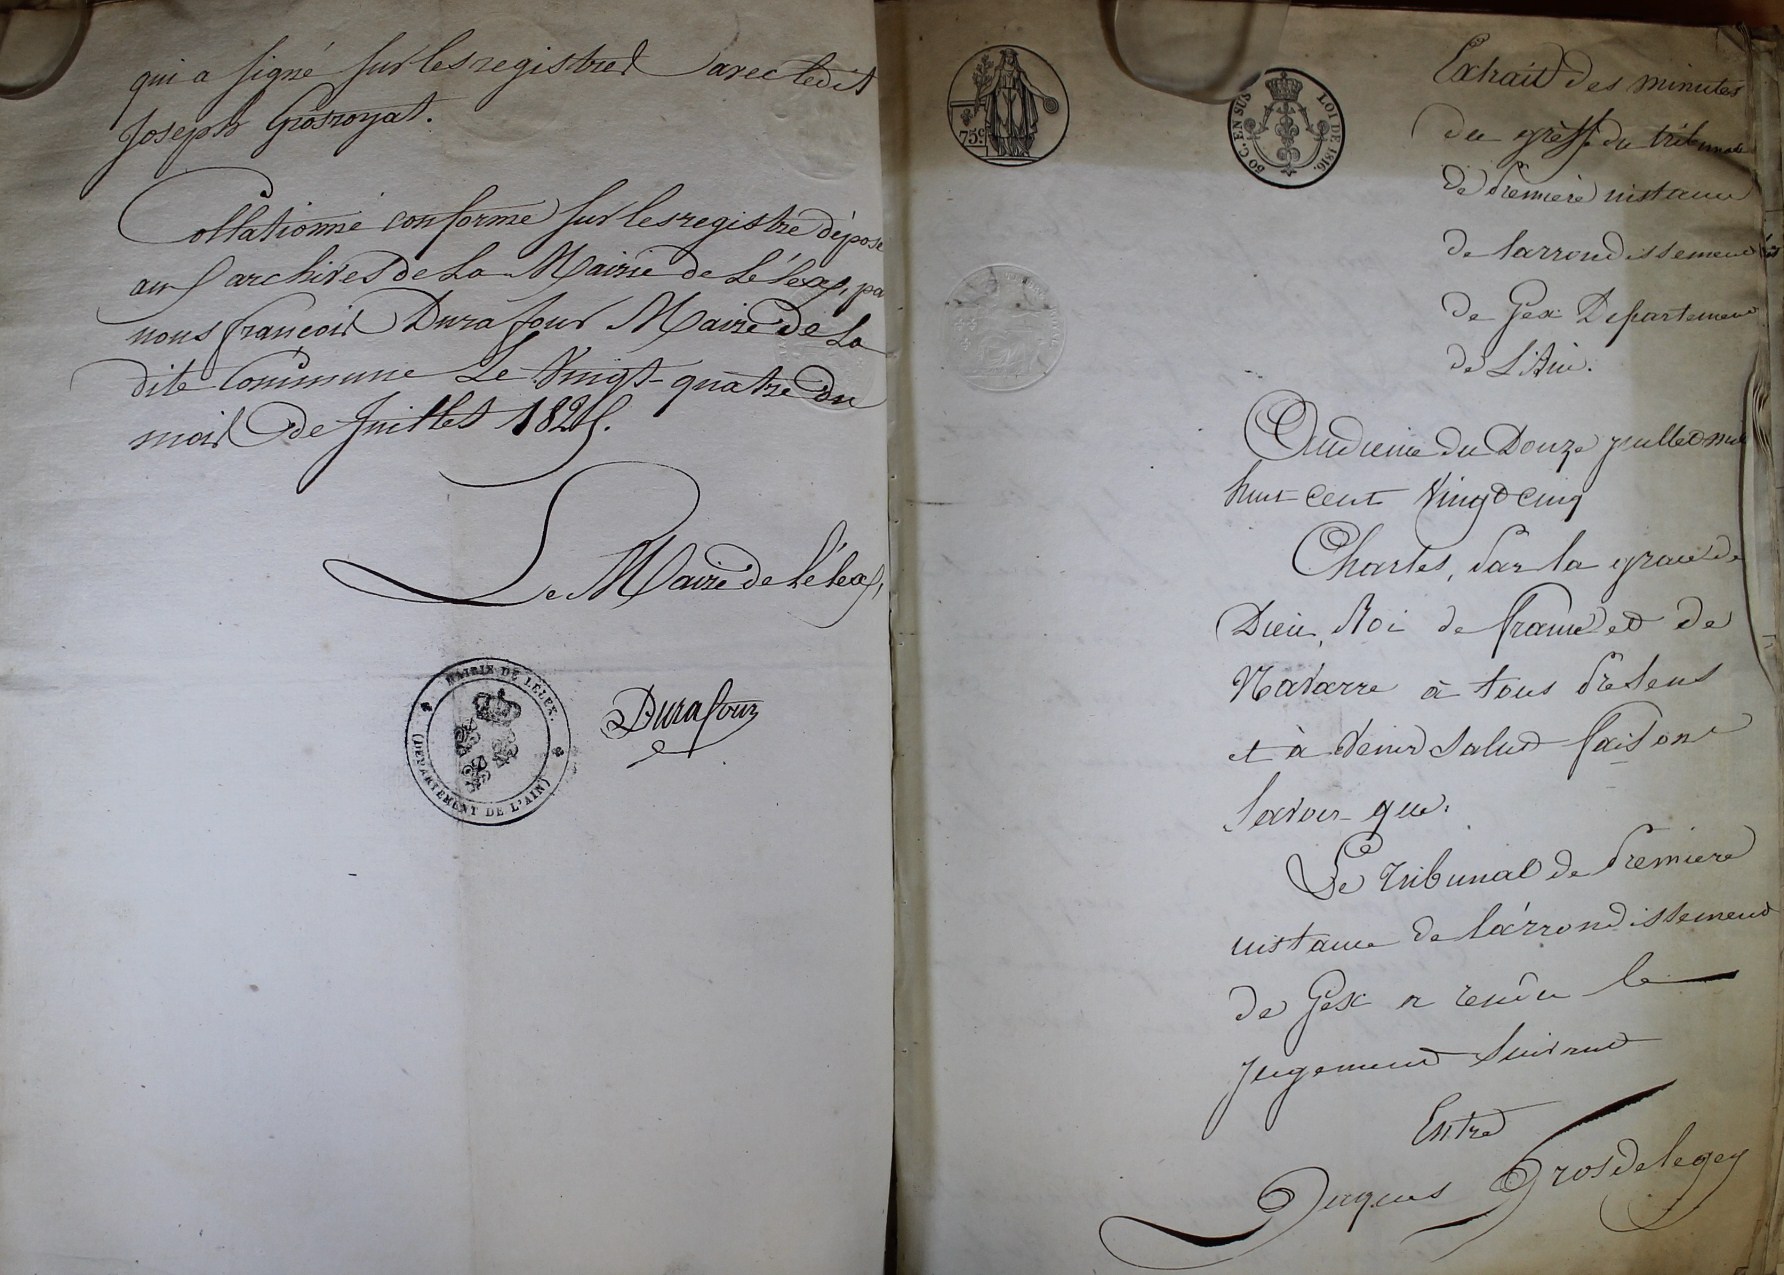 qui a signé sur les registres avec ledit
Joseph Grosroyat.
Collationné conforme sur les registre déposé
aux archives de la Mairie de Lélex, pa
nous françois Durafour Maire de La
dite Commune Le Vingt-quatre du
mois de Juillet 1825.
Le Maire de Lélex,
MAIRIE DE LELEX.
(DEPARTEMENT DE L'AIN)
Durafour
75 c.
LOI DE 1816.
C. EN SUS
Extrait des minutes
du greffe du tribunal
de Premiere instance
de larrondissement
de Gex Departement
de L'Ain.
Audience du Douze juillet mil
huit cent Vingt cinq
Charles, Par la grace de
Dieu, Roi de france et de
Navarre à tous Présens
et à Venir Salut faisons
Savoir que.
Le Tribunal de Premiere
instance de l'arrondissement
de Gex a rendu le
Jugement Suivant
Entre
Jaques Grosdelegey